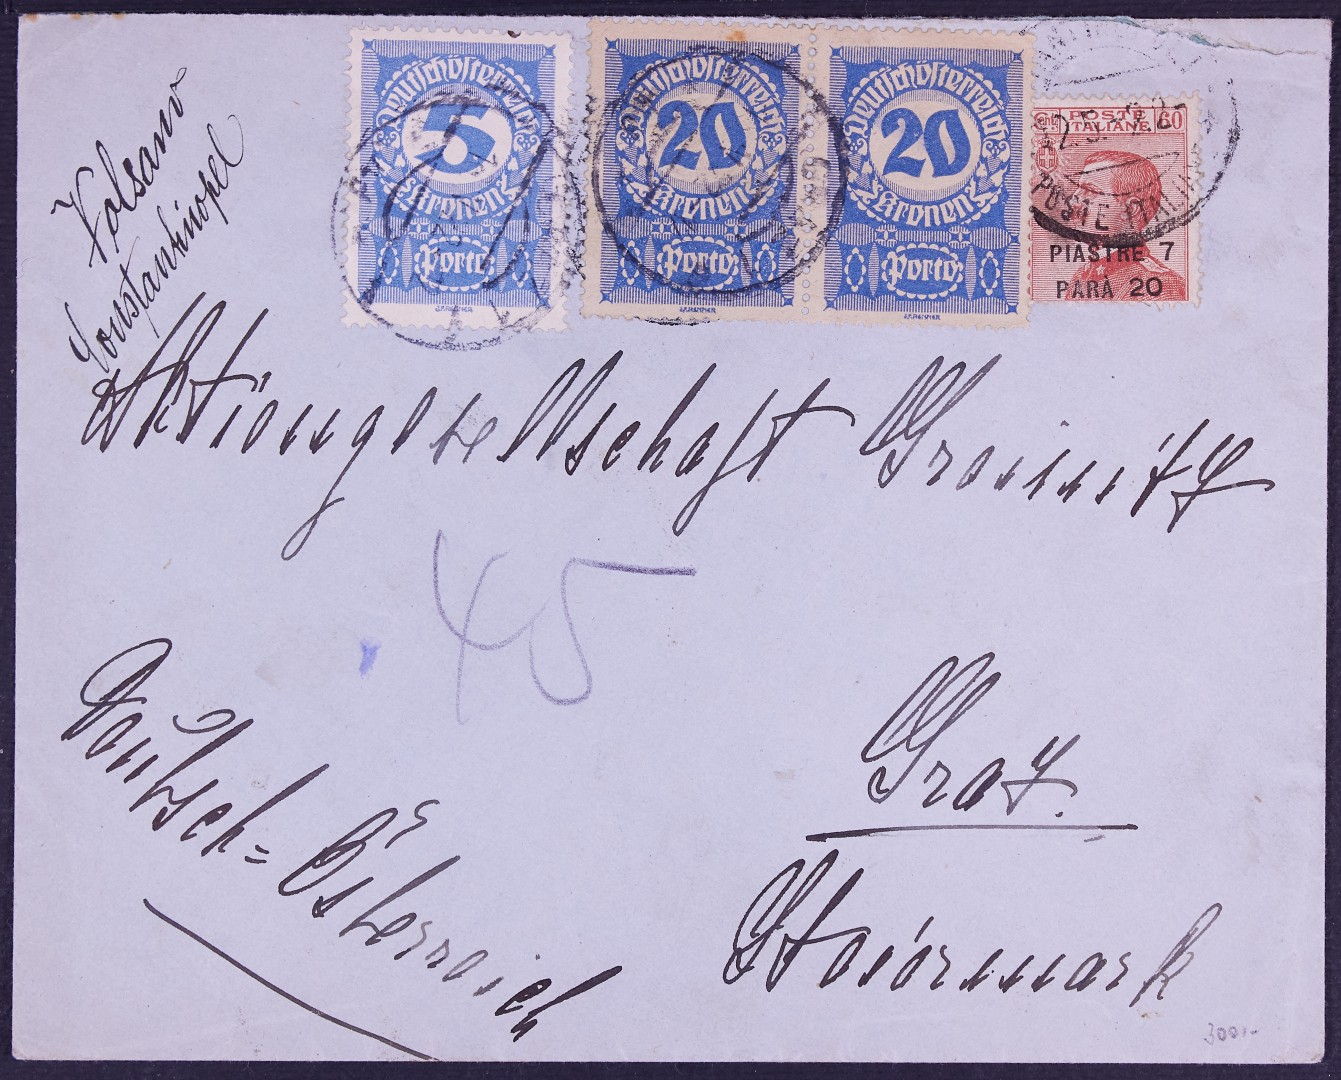 Deutschösterreich
5
Kronen
Porto
J.F.RENNER
Deutschösterreich
20
Kronen
Porto
Deutschösterreich
20
Kronen
Porto
J.F.RENNER
POSTE 60
ITALIANE
PIASTRE 7
PARA 20
POSTE ITALI
Constantinopel
Aktiengesellschaft Greinitz
45
Graz.
Deutsch=Österreich
Steiermark
3000.-